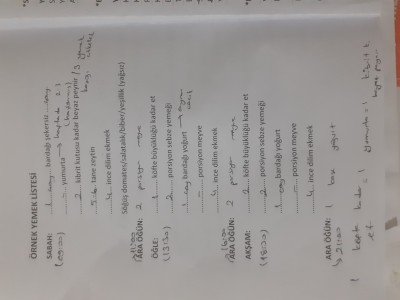 ÖRNEK YEMEK LİSTESİ
SABAH: 1 çay bardağı şekersiz çay
(09:00) yumurta → haftada 2-3
2 kibrit kutusu kadar beyaz peynir / 3 yemek kaşığı
5-6 tane zeytin
4 ince dilim ekmek
Söğüş domates/salatalık/biber/yeşillik (yağsız)
11:00
ARA ÖĞÜN: 2 porsiyon meyve
ÖĞLE: 1 köfte büyüklüğü kadar et
(13:30) 2 porsiyon sebze yemeği
1 çay bardağı yoğurt → ayran
– porsiyon meyve
4 ince dilim ekmek
16:00
ARA ÖĞÜN: 2 porsiyon meyve
AKŞAM: 2 köfte büyüklüğü kadar et
(18:30) 2 porsiyon sebze yemeği
1 çay bardağı yoğurt
– porsiyon meyve
4 ince dilim ekmek
ARA ÖĞÜN: 1 kase yoğurt
→ 21:00
1 kadar = 1 yumurta = 1 kibrit k.
et peynir